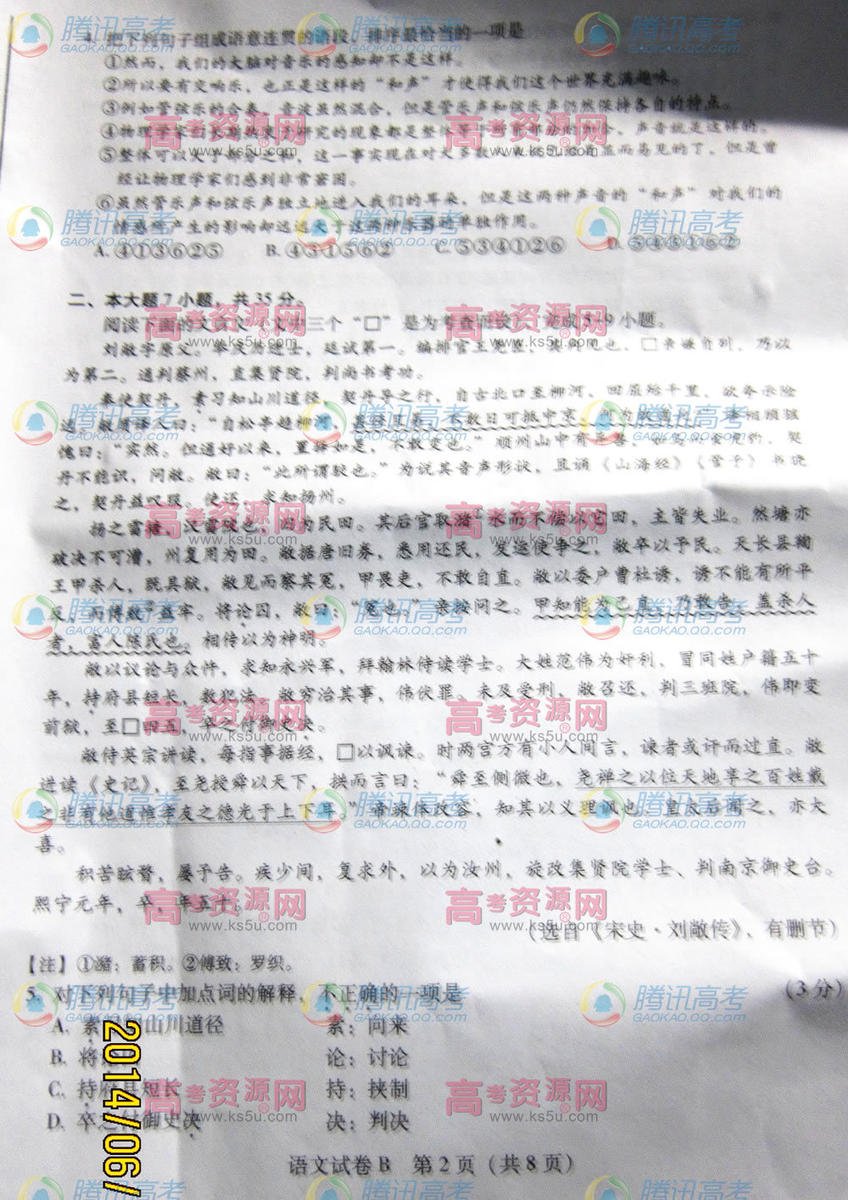 4. 把下列句子组成语意连贯的语段，排序最恰当的一项是
①然而，我们的大脑对音乐的感知却不是这样。
②所以要有交响乐，也正是这样的“和声”才使得我们这个世界充满趣味。
③例如管弦乐的合奏，音波虽然混合，但是管乐声和弦乐声仍然保持各自的特点。
④物理学家们长期 研究的现象都是整体等于 ，声音就是这样的。
⑤整体可以大于部分之和，这一事实现在对大多数 显而易见的了，但是曾
经让物理学家们感到非常窘困。
⑥虽然管乐声和弦乐声独立地进入我们的耳朵，但是这两种声音的“和声”对我们的
情感所产生的影响却远远大于这两种乐器的单独作用。
A. ④①③⑥②⑤ B. ④③①⑤⑥② C. ⑤③④①②⑥ D. ⑤④③①⑥②
二、本大题7小题，共35分。
阅读下面的文言文（文中三个“□”是为考查而设），完成5-9小题。
刘敞字原父。举庆 进士，廷试第一。编排官王尧臣，其 也，□亲嫌自列，乃以
为第二。通判蔡州，直集贤院，判尚书考功。
奉使契丹，素习知山川道径，契丹导之行，自古北口至柳河，回屈殆千里，欲夸示险
远。敞质译人曰：“自松亭趋柳河，甚径且易，不数日可抵中京，何为故道此？”译相顾骇
愧曰：“实然。但通好以来，置驿如是，不敢变也。”顺州山中有异兽，如马而食虎豹，契
丹不能识，问敞。敞曰：“此所谓駮也。”为说其音声形状，且诵《山海经》《管子》书晓
之，契丹益叹服。使还，求知扬州。
扬之雷塘，汉雷陂也，旧为民田。其后官取潴①水而不偿以它田，主皆失业。然塘亦
破决不可漕，州复用为田。敞据唐旧券，悉用还民，发运使争之，敞卒以予民。天长县鞫
王甲杀人，既具狱，敞见而察其冤，甲畏吏，不敢自直。敞以委户曹杜诱，诱不能有所平
反，而傅致②益牢。将论囚，敞曰：“冤也。”亲按问之。甲知能为己直，乃敢告，盖杀人
者，富人陈氏也。相传以为神明。
敞以议论与众忤，求知永兴军，拜翰林侍读学士。大姓范伟为奸利，冒同姓户籍五十
年，持府县短长，数犯法。敞穷治其事，伟伏罪。未及受刑，敞召还，判三班院，伟即变
前狱，至□四五，卒之付御史决。
敞侍英宗讲读，每指事据经，□以讽谏。时两宫方有小人间言，谏者或讦而过直。敞
进读《史记》，至尧授舜以天下，拱而言曰：“舜至侧微也，尧禅之以位天地享之百姓戴
之非有他道惟孝友之德光于上下耳。”帝竦体改容，知其以义理讽也。皇太后闻之，亦大
喜。
积苦眩瞀，屡予告。疾少间，复求外，以为汝州，旋改集贤院学士、判南京御史台。
熙宁元年，卒，年五十。
（选自《宋史·刘敞传》，有删节）
【注】①潴：蓄积。②傅致：罗织。
5. 对下列句子中加点词的解释，不正确的一项是 （3分）
A. 素习知山川道径 素：向来
B. 将论囚 论：讨论
C. 持府县短长 持：挟制
D. 卒之付御史决 决：判决
语文试卷B 第2页（共8页）
2014/06/
腾讯高考
GAOKAO.QQ.COM
高考资源网
www.ks5u.com